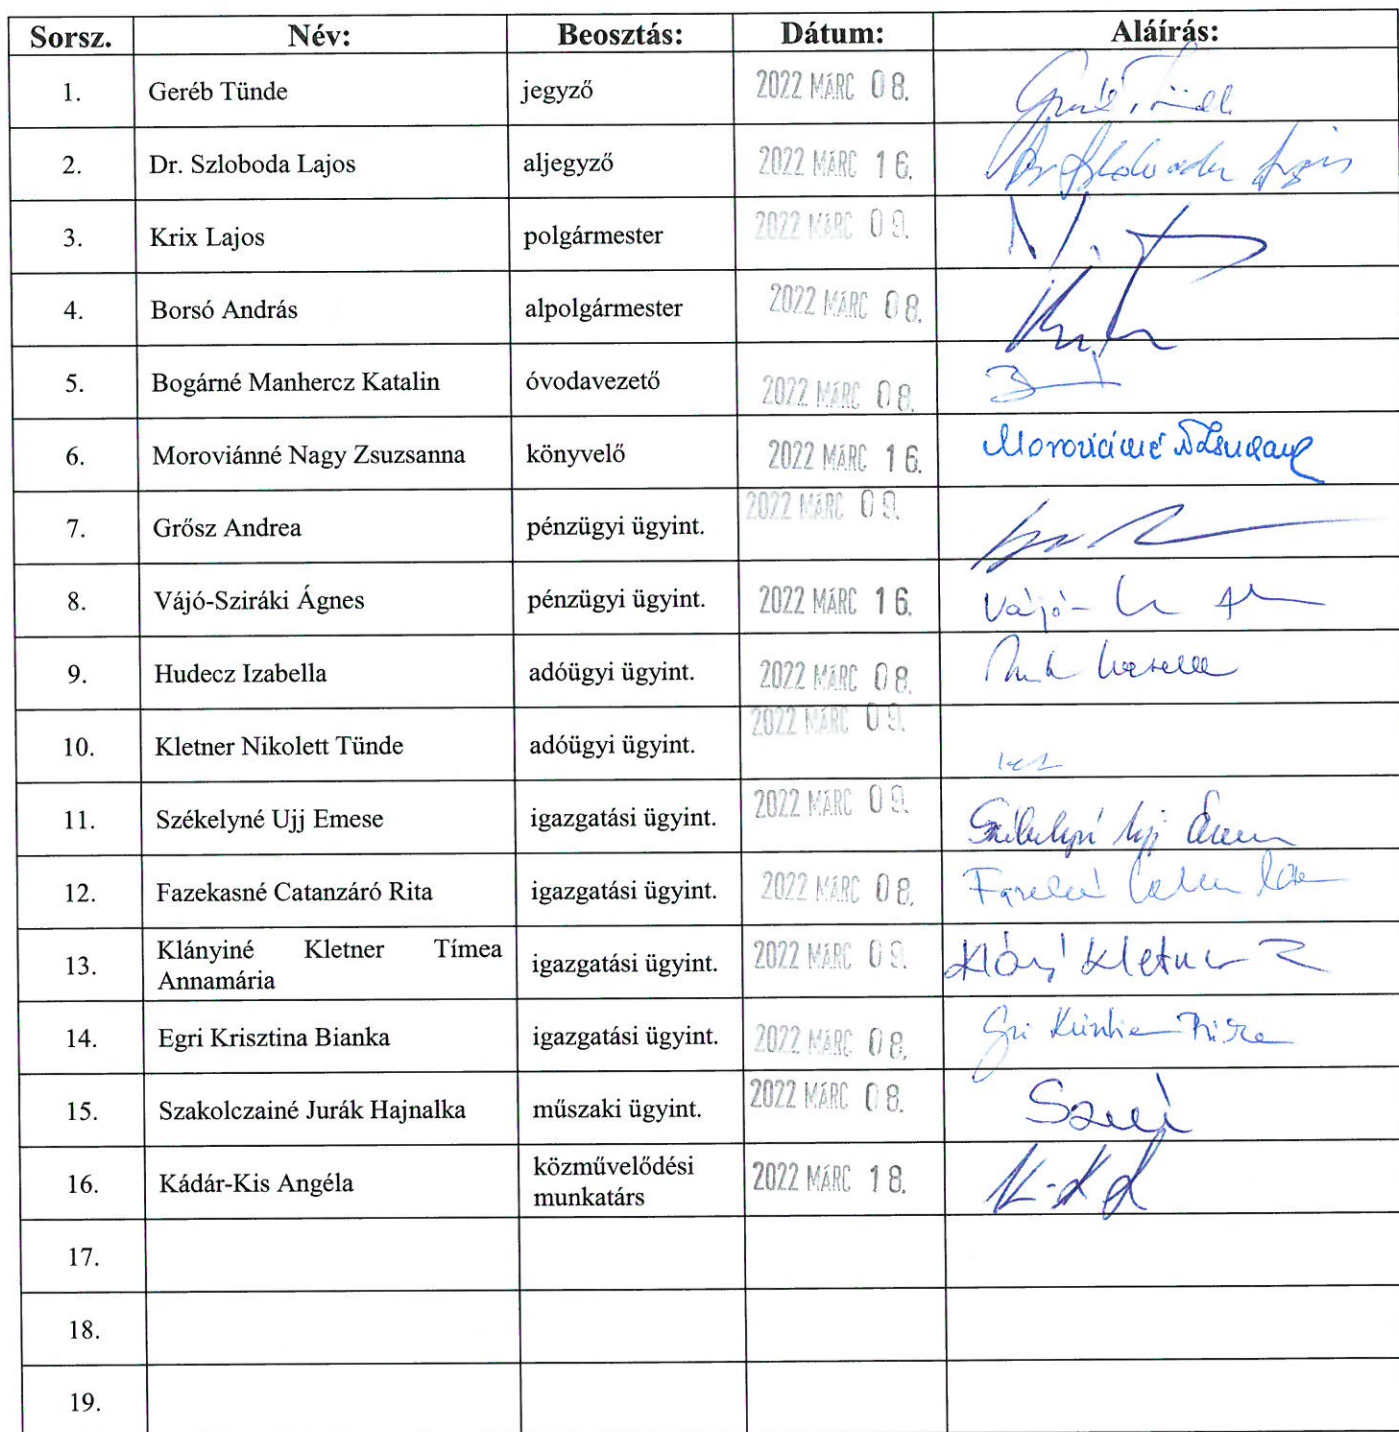 Sorsz. Név: Beosztás: Dátum: Aláírás:
1. Geréb Tünde jegyző 2022 MÁRC 08.
2. Dr. Szloboda Lajos aljegyző 2022 MÁRC 16.
3. Krix Lajos polgármester 2022 MÁRC 09.
4. Borsó András alpolgármester 2022 MÁRC 08.
5. Bogárné Manhercz Katalin óvodavezető 2022 MÁRC 08.
6. Moroviánné Nagy Zsuzsanna könyvelő 2022 MÁRC 16.
7. Grősz Andrea pénzügyi ügyint. 2022 MÁRC 09.
8. Vájó-Sziráki Ágnes pénzügyi ügyint. 2022 MÁRC 16. Vájó-
9. Hudecz Izabella adóügyi ügyint. 2022 MÁRC 08.
10. Kletner Nikolett Tünde adóügyi ügyint. 2022 MÁRC 09.
11. Székelyné Ujj Emese igazgatási ügyint. 2022 MÁRC 09.
12. Fazekasné Catanzáró Rita igazgatási ügyint. 2022 MÁRC 08.
13. Klányiné Kletner Tímea
Annamária igazgatási ügyint. 2022 MÁRC 09. Kletner
14. Egri Krisztina Bianka igazgatási ügyint. 2022 MÁRC 08.
15. Szakolczainé Jurák Hajnalka műszaki ügyint. 2022 MÁRC 08.
16. Kádár-Kis Angéla közművelődési
munkatárs 2022 MÁRC 18.
17.
18.
19.